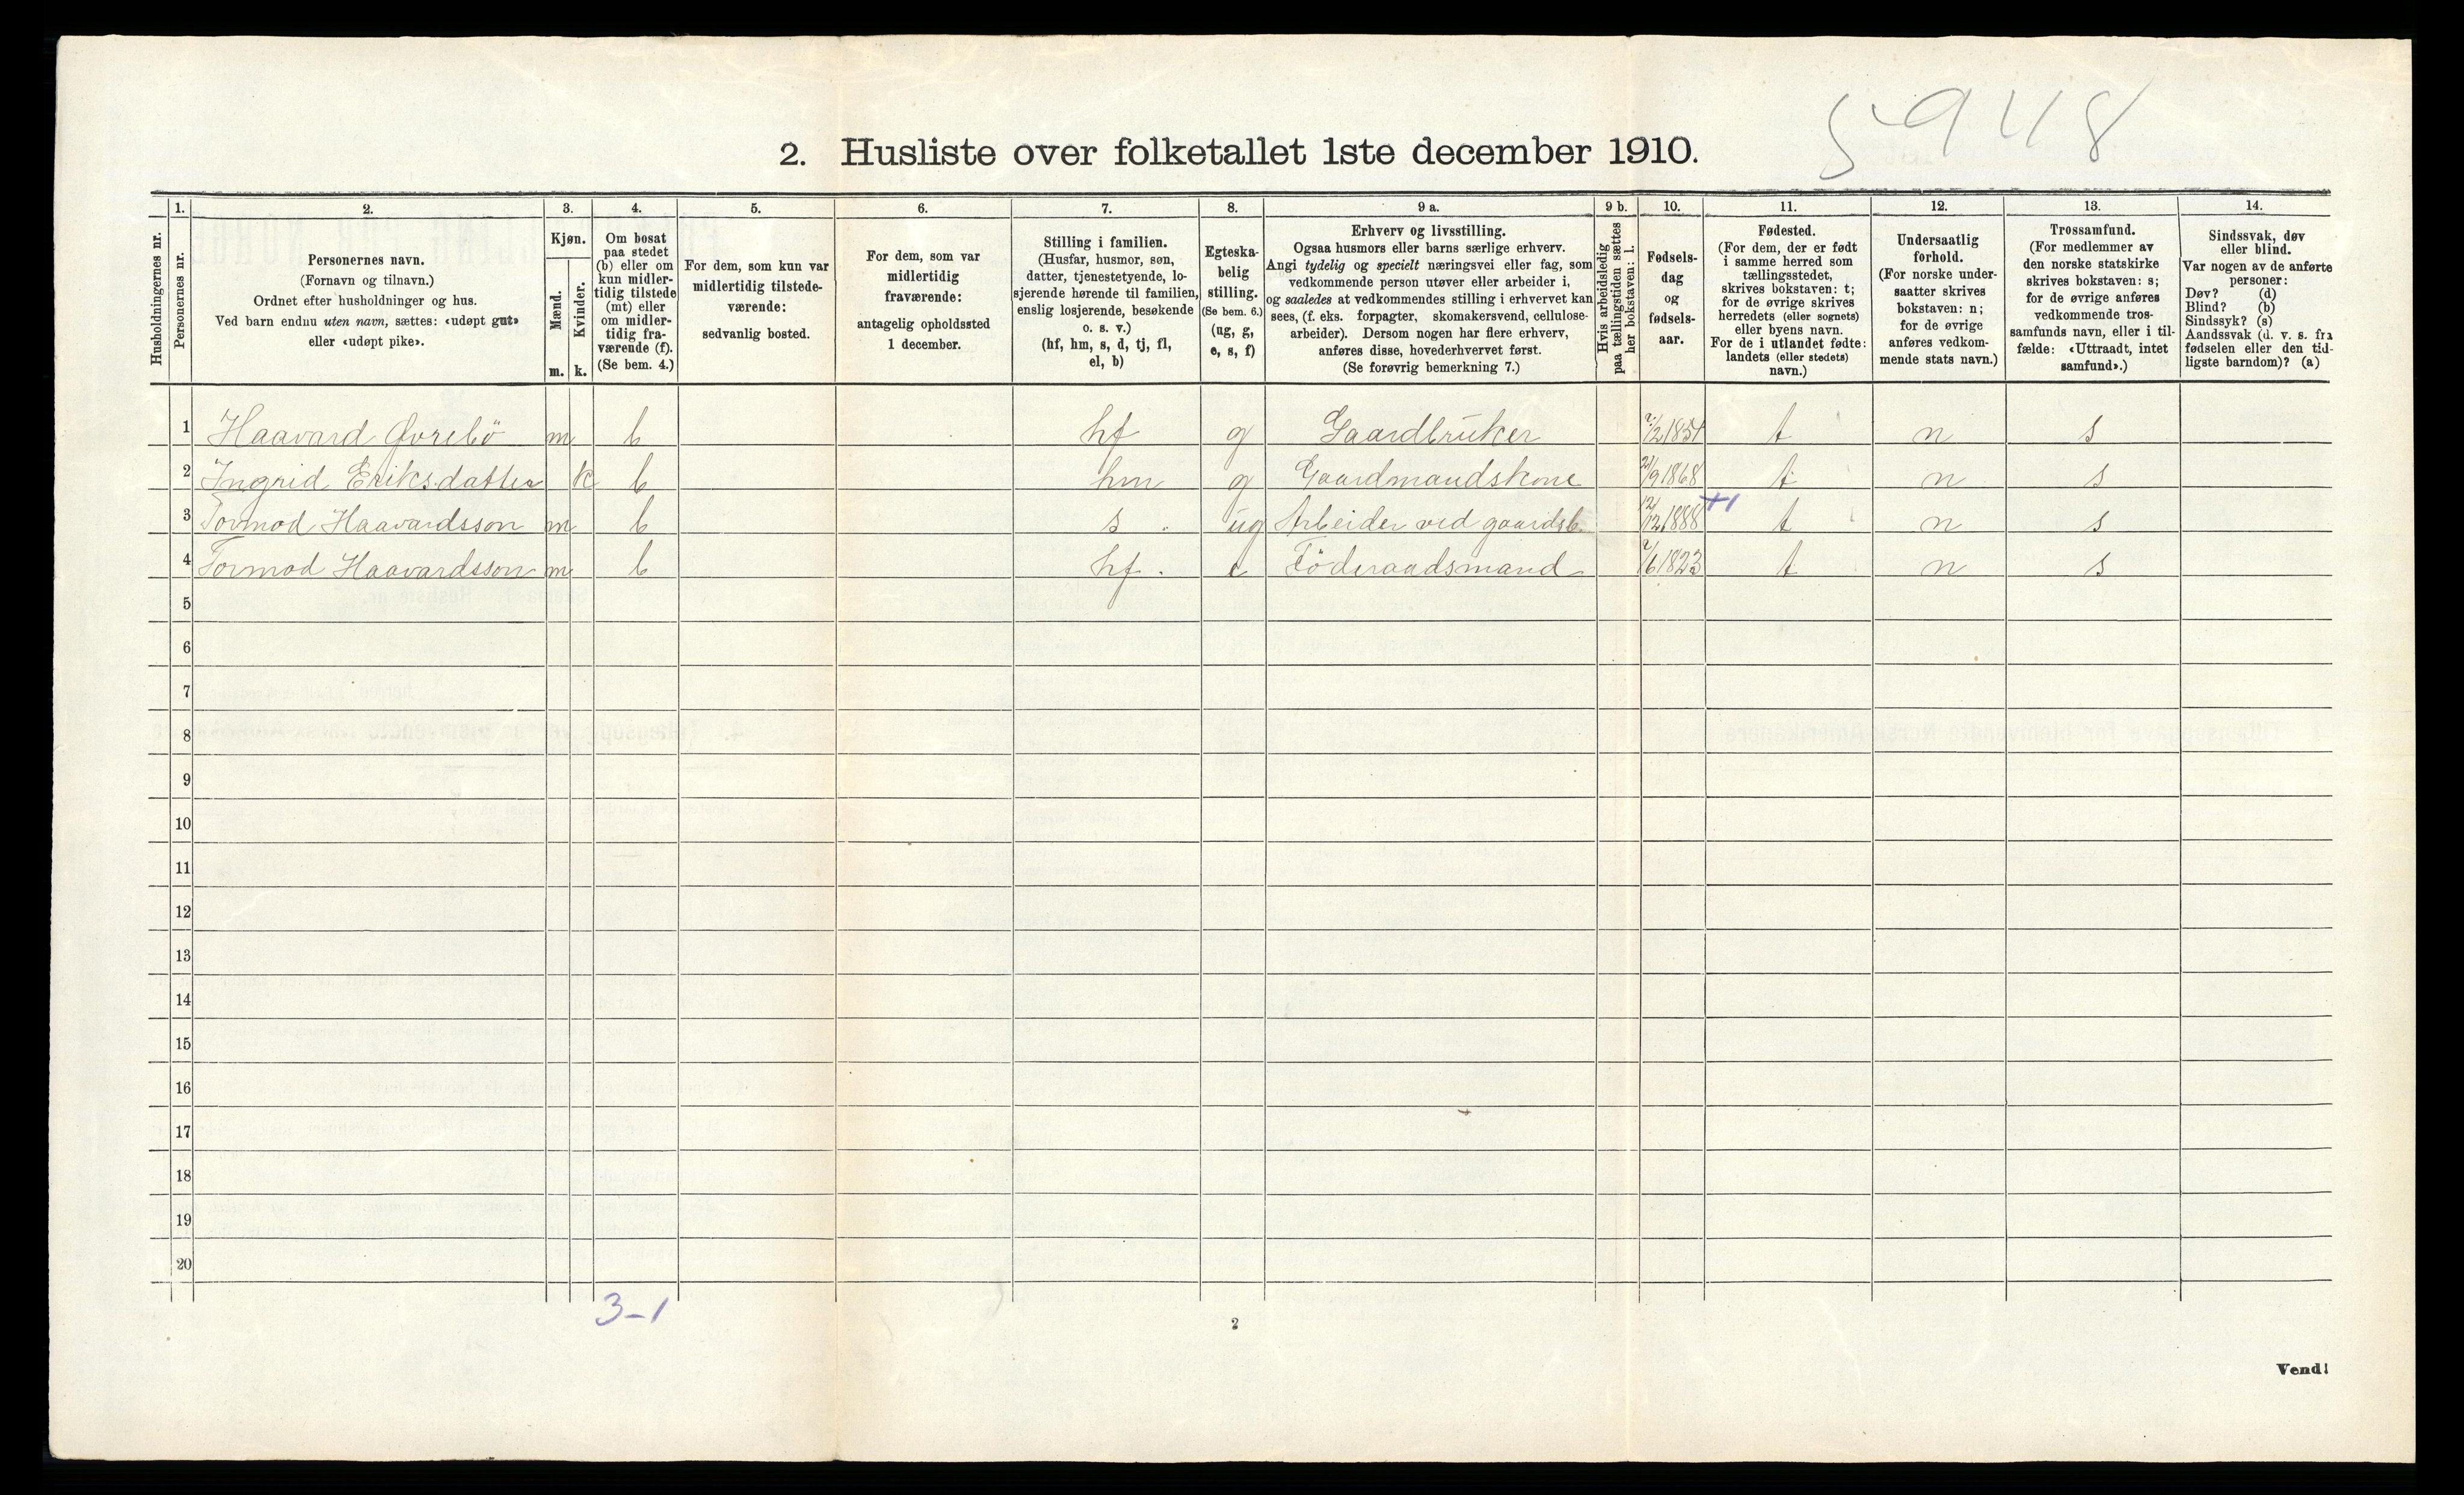 5948
2. Husliste over folketallet 1ste december 1910.
Husholdningernes nr.
1.
Personernes nr.
2.
Personernes navn.
(Fornavn og tilnavn.)
Ordnet efter husholdninger og hus.
Ved barn endnu uten navn, sættes: «udøpt gut»
eller «udøpt pike».
3.
Kjøn.
Mænd.
Kvinder.
m. k.
4.
Om bosat
paa stedet
(b) eller om
kun midler-
tidig tilstede
(mt) eller
om midler-
tidig fra-
værende (f).
(Se bem. 4.)
5.
For dem, som kun var
midlertidig tilstede-
værende:
sedvanlig bosted.
6.
For dem, som var
midlertidig
fraværende:
antagelig opholdssted
1 december.
7.
Stilling i familien.
(Husfar, husmor, søn,
datter, tjenestetyende, lo-
sjerende hørende til familien,
enslig losjerende, besøkende
o. s. v.)
(hf, hm, s, d, tj, fl,
el, b)
8.
Egteska-
belig
stilling.
(Se bem. 6.)
(ug, g,
e, s, f)
9 a.
Erhverv og livsstilling.
Ogsaa husmors eller barns særlige erhverv.
Angi tydelig og specielt næringsvei eller fag, som
vedkommende person utøver eller arbeider i,
og saaledes at vedkommendes stilling i erhvervet kan
sees, (f. eks. forpagter, skomakersvend, cellulose-
arbeider). Dersom nogen har flere erhverv,
anføres disse, hovederhvervet først.
(Se forøvrig bemerkning 7.)
9 b.
Hvis arbeidsledig
paa tællingstiden sættes
her bokstaven: l.
10.
Fødsels-
dag
og
fødsels-
aar.
11.
Fødested.
(For dem, der er født
i samme herred som
tællingsstedet,
skrives bokstaven: t;
for de øvrige skrives
herredets (eller sognets)
eller byens navn.
For de i utlandet fødte:
landets (eller stedets)
navn.)
12.
Undersaatlig
forhold.
(For norske under-
saatter skrives
bokstaven: n;
for de øvrige
anføres vedkom-
mende stats navn.)
13.
Trossamfund.
(For medlemmer av
den norske statskirke
skrives bokstaven: s;
for de øvrige anføres
vedkommende tros-
samfunds navn, eller i til-
fælde: «Uttraadt, intet
samfund».)
14.
Sindssvak, døv
eller blind.
Var nogen av de anførte
personer:
Døv? (d)
Blind? (b)
Sindssyk? (s)
Aandssvak (d. v. s. fra
fødselen eller den tid-
ligste barndom)? (a)
1 Haavard Øvrebö m b hf g Gaardbruker t n s
2 Ingrid Eriksdatter k b hm g Gaardmandskone 21/9 1868 t n s
3 Tormod Haavardsson m b s. ug Arbeider ved gaardsb. 12/12 1888 +1 t n s
4 Tormod Haavardsson m b hf. e Föderaadsmand 1823 t n s
5
6
7
8
9
10
11
12
13
14
15
16
17
18
19
20
3-1
2
Vend!